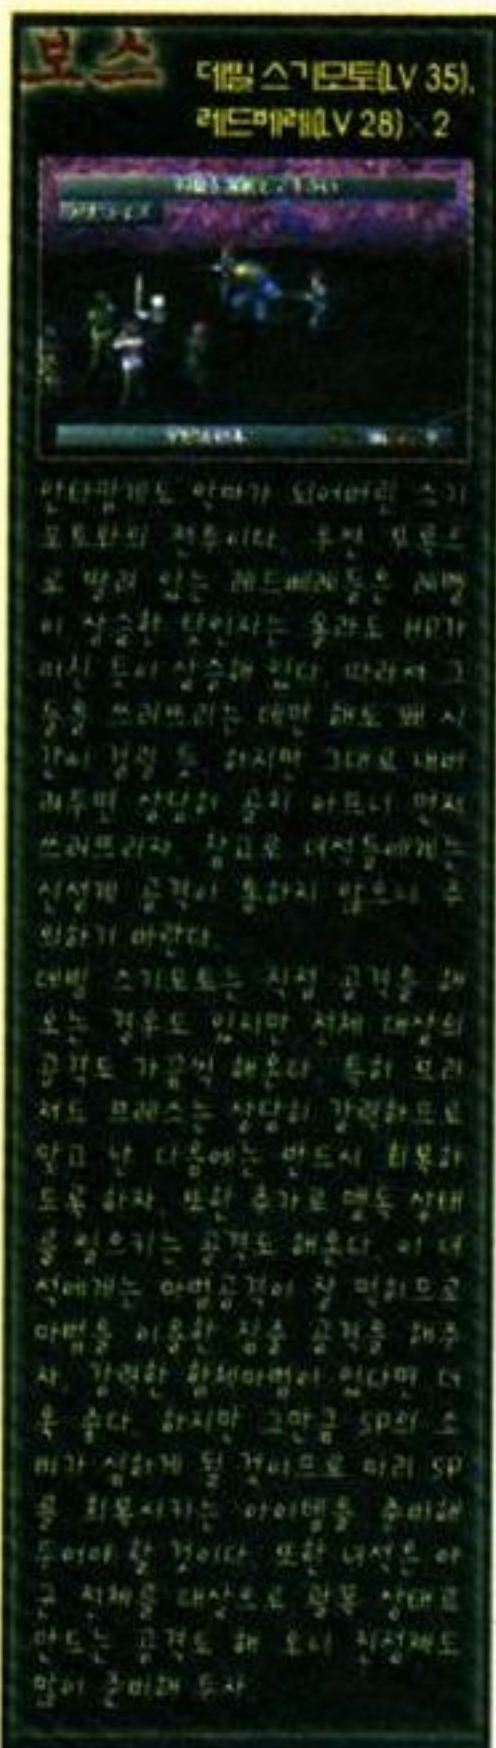 보스
데빌 스기모토(LV 35),
레드베레(LV 28) × 2
안타깝게도 악마가 되어버린 스기
모토와의 전투이다. 우선 보론으
로 딸려 있는 레드베레들은 레벨
이 상승한 탓인지는 몰라도 HP가
미친 듯이 상승해 있다. 따라서 그
들을 쓰러뜨리는 데만 해도 꽤 시
간이 걸릴 듯. 하지만 그대로 내버
려두면 상당히 골치 아프니 먼저
쓰러뜨리자. 참고로 녀석들에게는
신성계 공격이 통하지 않으니 주
의하기 바란다.
데빌 스기모토는 직접 공격을 해
오는 경우도 있지만 전체 대상의
공격도 가끔씩 해온다. 특히
브레스는 상당히 강력하므로
맞고 난 다음에는 반드시 회복하
도록 하자. 또한 추가로 맹독 상태
를 일으키는 공격도 해온다. 이 녀
석에게는 마법공격이 잘 먹히므로
마법을 이용한 집중 공격을 해주
자. 강력한 합체마법이 있다면 더
욱 좋다. 하지만 그만큼 SP의 소
비가 심하게 될 것이므로 미리 SP
를 회복시키는 아이템을 준비해
두어야 할 것이다. 또한 녀석은 아
군 전체를 대상으로 상태로
만드는 공격도 해 오니 진정제도
많이 준비해 두자.